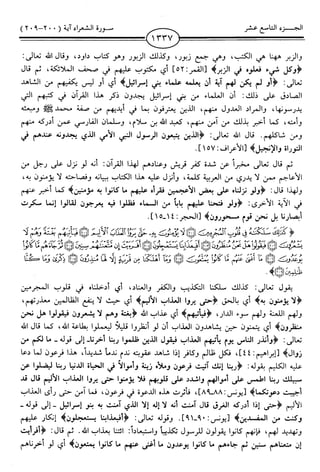 الجزء التاسع عشر
سورة الشعراء آية (٢٠٠-٢٠٩)
١٣٣٧
والزبر ههنا هي الكتب، وهي جمع زبور، وكذلك الزبور وهو كتاب داود، وقال الله تعالى:
﴿وكل شيء فعلوه في الزبر﴾ [القمر: ٥٢] أي مكتوب عليهم في صحف الملائكة، ثم قال
تعالى: ﴿أو لم يكن لهم آية أن يعلمه علماء بني إسرائيل﴾ أي أو ليس يكفيهم من الشاهد
الصادق على ذلك: أن العلماء من بني إسرائيل يجدون ذكر هذا القرآن في كتبهم التي
يدرسونها، والمراد العدول منهم، الذين يعترفون بما في أيديهم من صفة محمد ﷺ ومبعثه
وأمته، كما أخبر بذلك من آمن منهم، كعبد الله بن سلام، وسلمان الفارسي عمن أدركه منهم
ومن شاكلهم. قال الله تعالى: ﴿الذين يتبعون الرسول النبي الأمي الذي يجدونه عندهم في
التوراة والإنجيل﴾ [الأعراف: ١٥٧].
ثم قال تعالى مخبراً عن شدة كفر قريش وعنادهم لهذا القرآن: أنه لو نزل على رجل من
الأعاجم ممن لا يدري من العربية كلمة، وأنزل عليه هذا الكتاب ببيانه وفصاحته لا يؤمنون به،
ولهذا قال: ﴿ولو نزلناه على بعض الأعجمين فقرأه عليهم ما كانوا به مؤمنين﴾ كما أخبر عنهم
في الآية الأخرى: ﴿ولو فتحنا عليهم باباً من السماء فظلوا فيه يعرجون لقالوا إنما سكرت
أبصارنا بل نحن قوم مسحورون﴾ [الحجر: ١٤ـ١٥].
يقول تعالى: كذلك سلكنا التكذيب والكفر والعناد، أي أدخلناه في قلوب المجرمين
﴿لا يؤمنون به﴾ أي بالحق ﴿حتى يروا العذاب الأليم﴾ أي حيث لا ينفع الظالمين معذرتهم،
ولهم اللعنة ولهم سوء الدار، ﴿فيأتيهم﴾ أي عذاب الله ﴿بغتة وهم لا يشعرون فيقولوا هل نحن
منظرون﴾ أي يتمنون حين يشاهدون العذاب أن لو أنظروا قليلاً ليعملوا بطاعة الله، كما قال الله
تعالى: ﴿وأنذر الناس يوم يأتيهم العذاب فيقول الذين ظلموا ربنا أخرنا - إلى قوله - ما لكم من
زوال﴾ [إبراهيم: ٤٤]، فكل ظالم وكافر إذا شاهد عقوبته ندم ندماً شديداً، هذا فرعون لما دعا
عليه الكليم بقوله: ﴿ربنا إنك آتيت فرعون وملأه زينة وأموالاً في الحياة الدنيا ربنا ليضلوا عن
سبيلك ربنا اطمس على أموالهم واشدد على قلوبهم فلا يؤمنوا حتى يروا العذاب الأليم قال قد
أجيبت دعوتكما﴾ [يونس: ٨٨ـ٨٩]، فأثرت هذه الدعوة في فرعون، فما آمن حتى رأى العذاب
الأليم ﴿حتى إذا أدركه الغرق قال آمنت أنه لا إله إلا الذي آمنت به بنو إسرائيل - إلى قوله -
وكنت من المفسدين﴾ [يونس: ٩٠ـ٩١]. وقوله تعالى: ﴿أفبعذابنا يستعجلون﴾ إنكار عليهم
وتهديد لهم، فإنهم كانوا يقولون للرسول تكذيباً واستبعاداً: ائتنا بعذاب الله. ثم قال: ﴿أفرأيت
إن متعناهم سنين ثم جاءهم ما كانوا يوعدون ما أغنى عنهم ما كانوا يمتعون﴾ أي لو أخرناهم